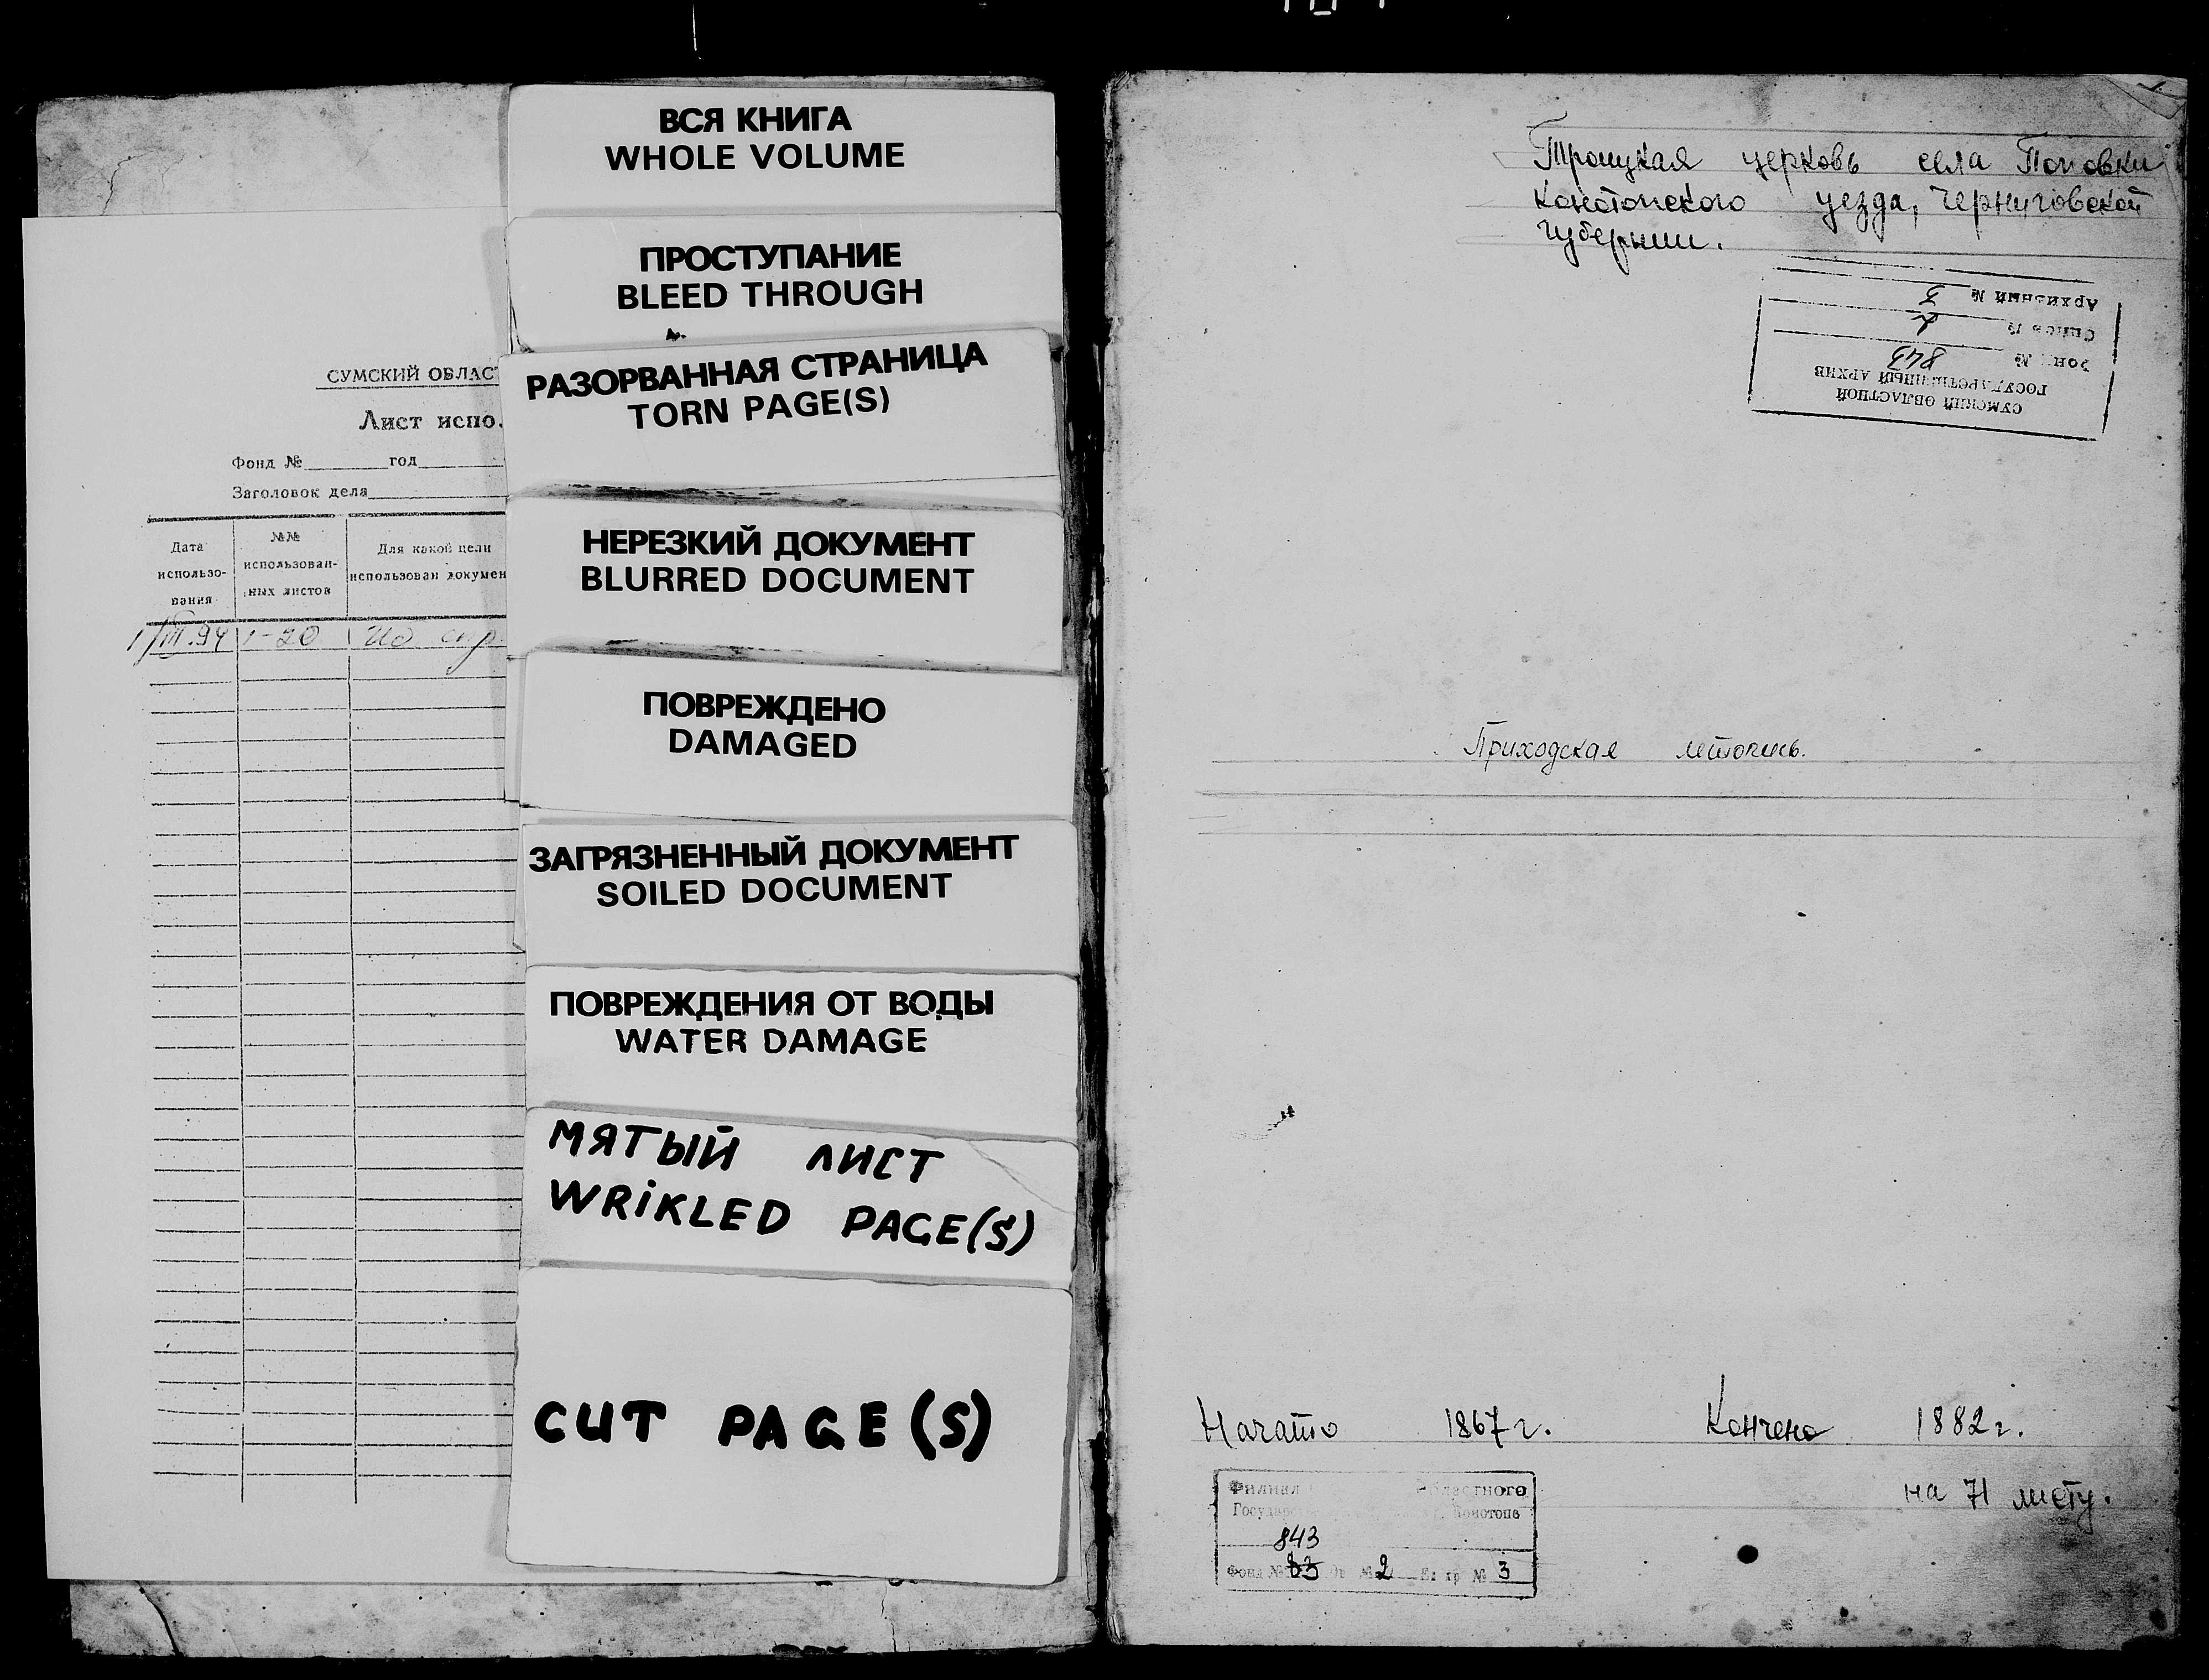 СУМСКИЙ ОБЛАСТ
Лист испо.
Фонд № год
Заголовок дела
Дата использо-вания
№№ использован-ных листов
Для какой цели использован докумен
1/III.94 1-20
ВСЯ КНИГА
WHOLE VOLUME
ПРОСТУПАНИЕ
BLEED THROUGH
РАЗОРВАННАЯ СТРАНИЦА
TORN PAGE(S)
НЕРЕЗКИЙ ДОКУМЕНТ
BLURRED DOCUMENT
ПОВРЕЖДЕНО
DAMAGED
ЗАГРЯЗНЕННЫЙ ДОКУМЕНТ
SOILED DOCUMENT
ПОВРЕЖДЕНИЯ ОТ ВОДЫ
WATER DAMAGE
МЯТЫЙ ЛИСТ
WRIKLED PAGE(S)
CUT PAGE(S)
Троицкая церковь села Поповки
Конотопского уезда, Черниговской
губернии.
СУМСКИЙ ОБЛАСТНОЙ
ГОСУДАРСТВЕННЫЙ АРХИВ
Фонд № 843
Опись №
Архивный №
Приходская летопись.
Начато 1867 г. Кончено 1882 г.
на 71 листу.
Филиал Областного
Конотопе
843
Фонд № 83 Оп №2 Ед хр № 3